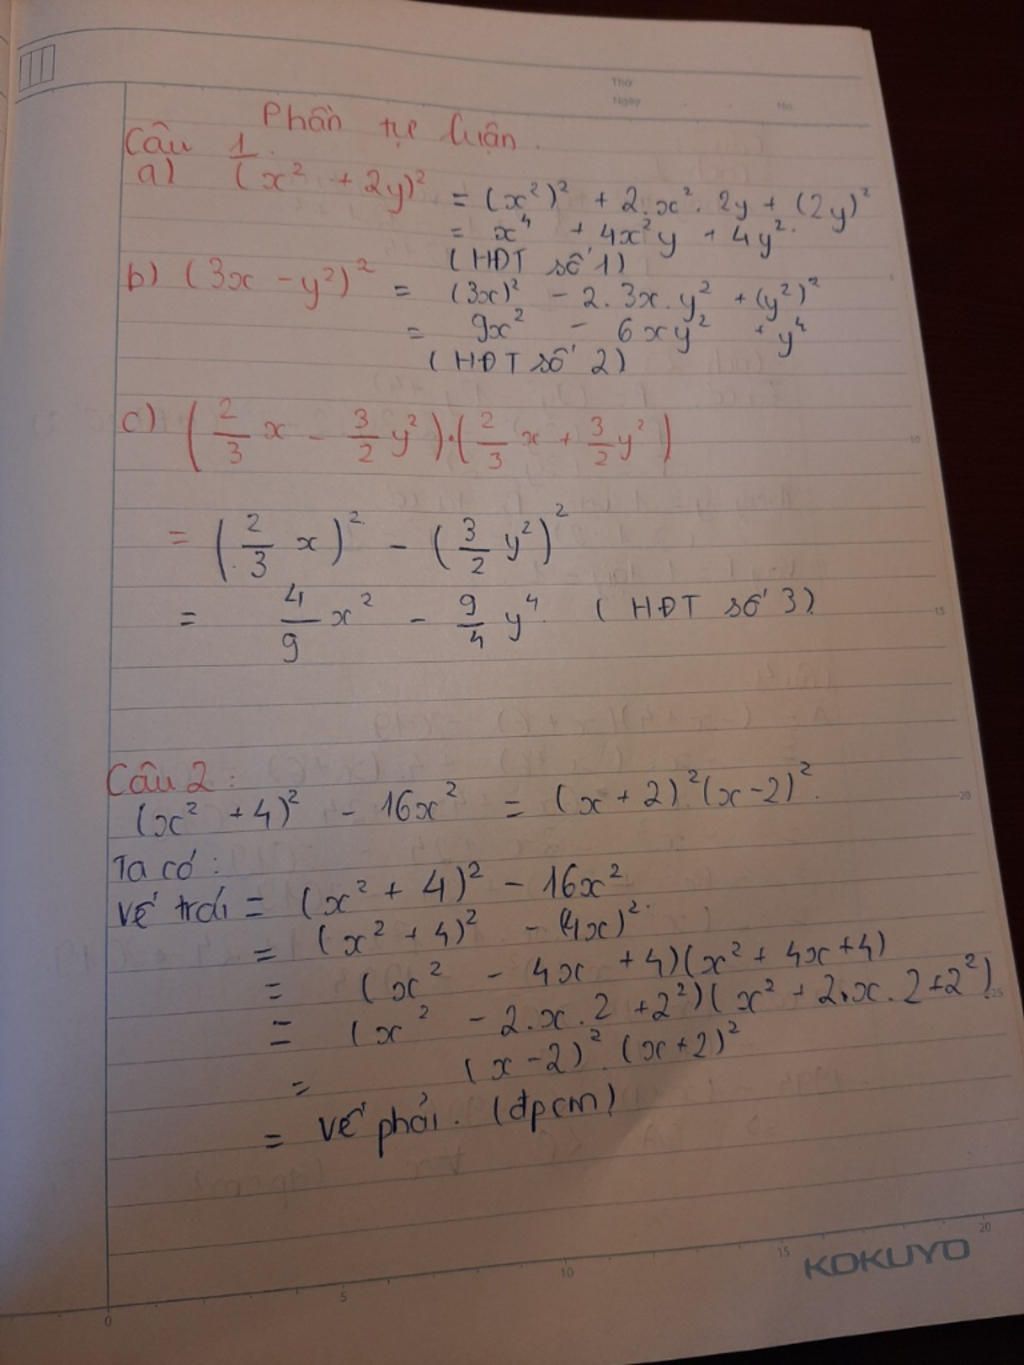 Thứ
Ngày
No.
Phần tự luận.
Câu 1
a) (x² + 2y)² = (x²)² + 2.x².2y + (2y)²
= x⁴ + 4x²y + 4y².
(HĐT số 1)
b) (3x - y²)² = (3x)² - 2.3x.y² + (y²)²
= 9x² - 6xy² + y⁴
(HĐT số 2)
c) (2/3 x - 3/2 y²).(2/3 x + 3/2 y²)
= (2/3 x)² - (3/2 y²)²
= 4/9 x² - 9/4 y⁴. (HĐT số 3)
Câu 2:
(x² + 4)² - 16x² = (x + 2)²(x - 2)².
Ta có:
Vế trái = (x² + 4)² - 16x²
= (x² + 4)² - (4x)².
= (x² - 4x + 4)(x² + 4x + 4)
= (x² - 2.x.2 + 2²)(x² + 2.x.2 + 2²)
= (x - 2)².(x + 2)²
= Vế phải. (đpcm)
5
10
15
20
25
0 5 10 15 20
KOKUYO